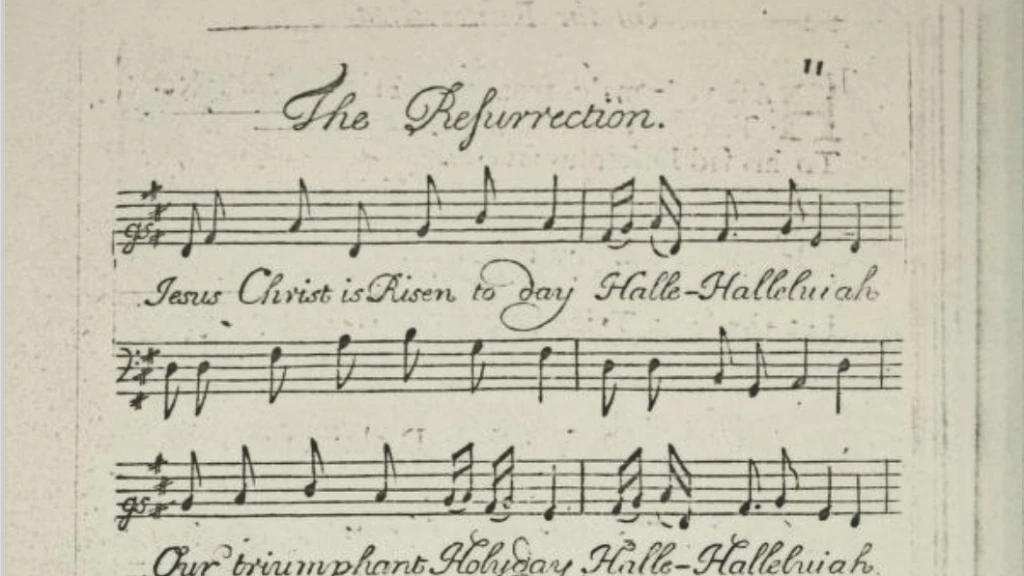 11
The Reſurrection.
Jesus Christ is Risen to day Halle-Halleluiah
Our triumphant Holyday Halle-Halleluiah